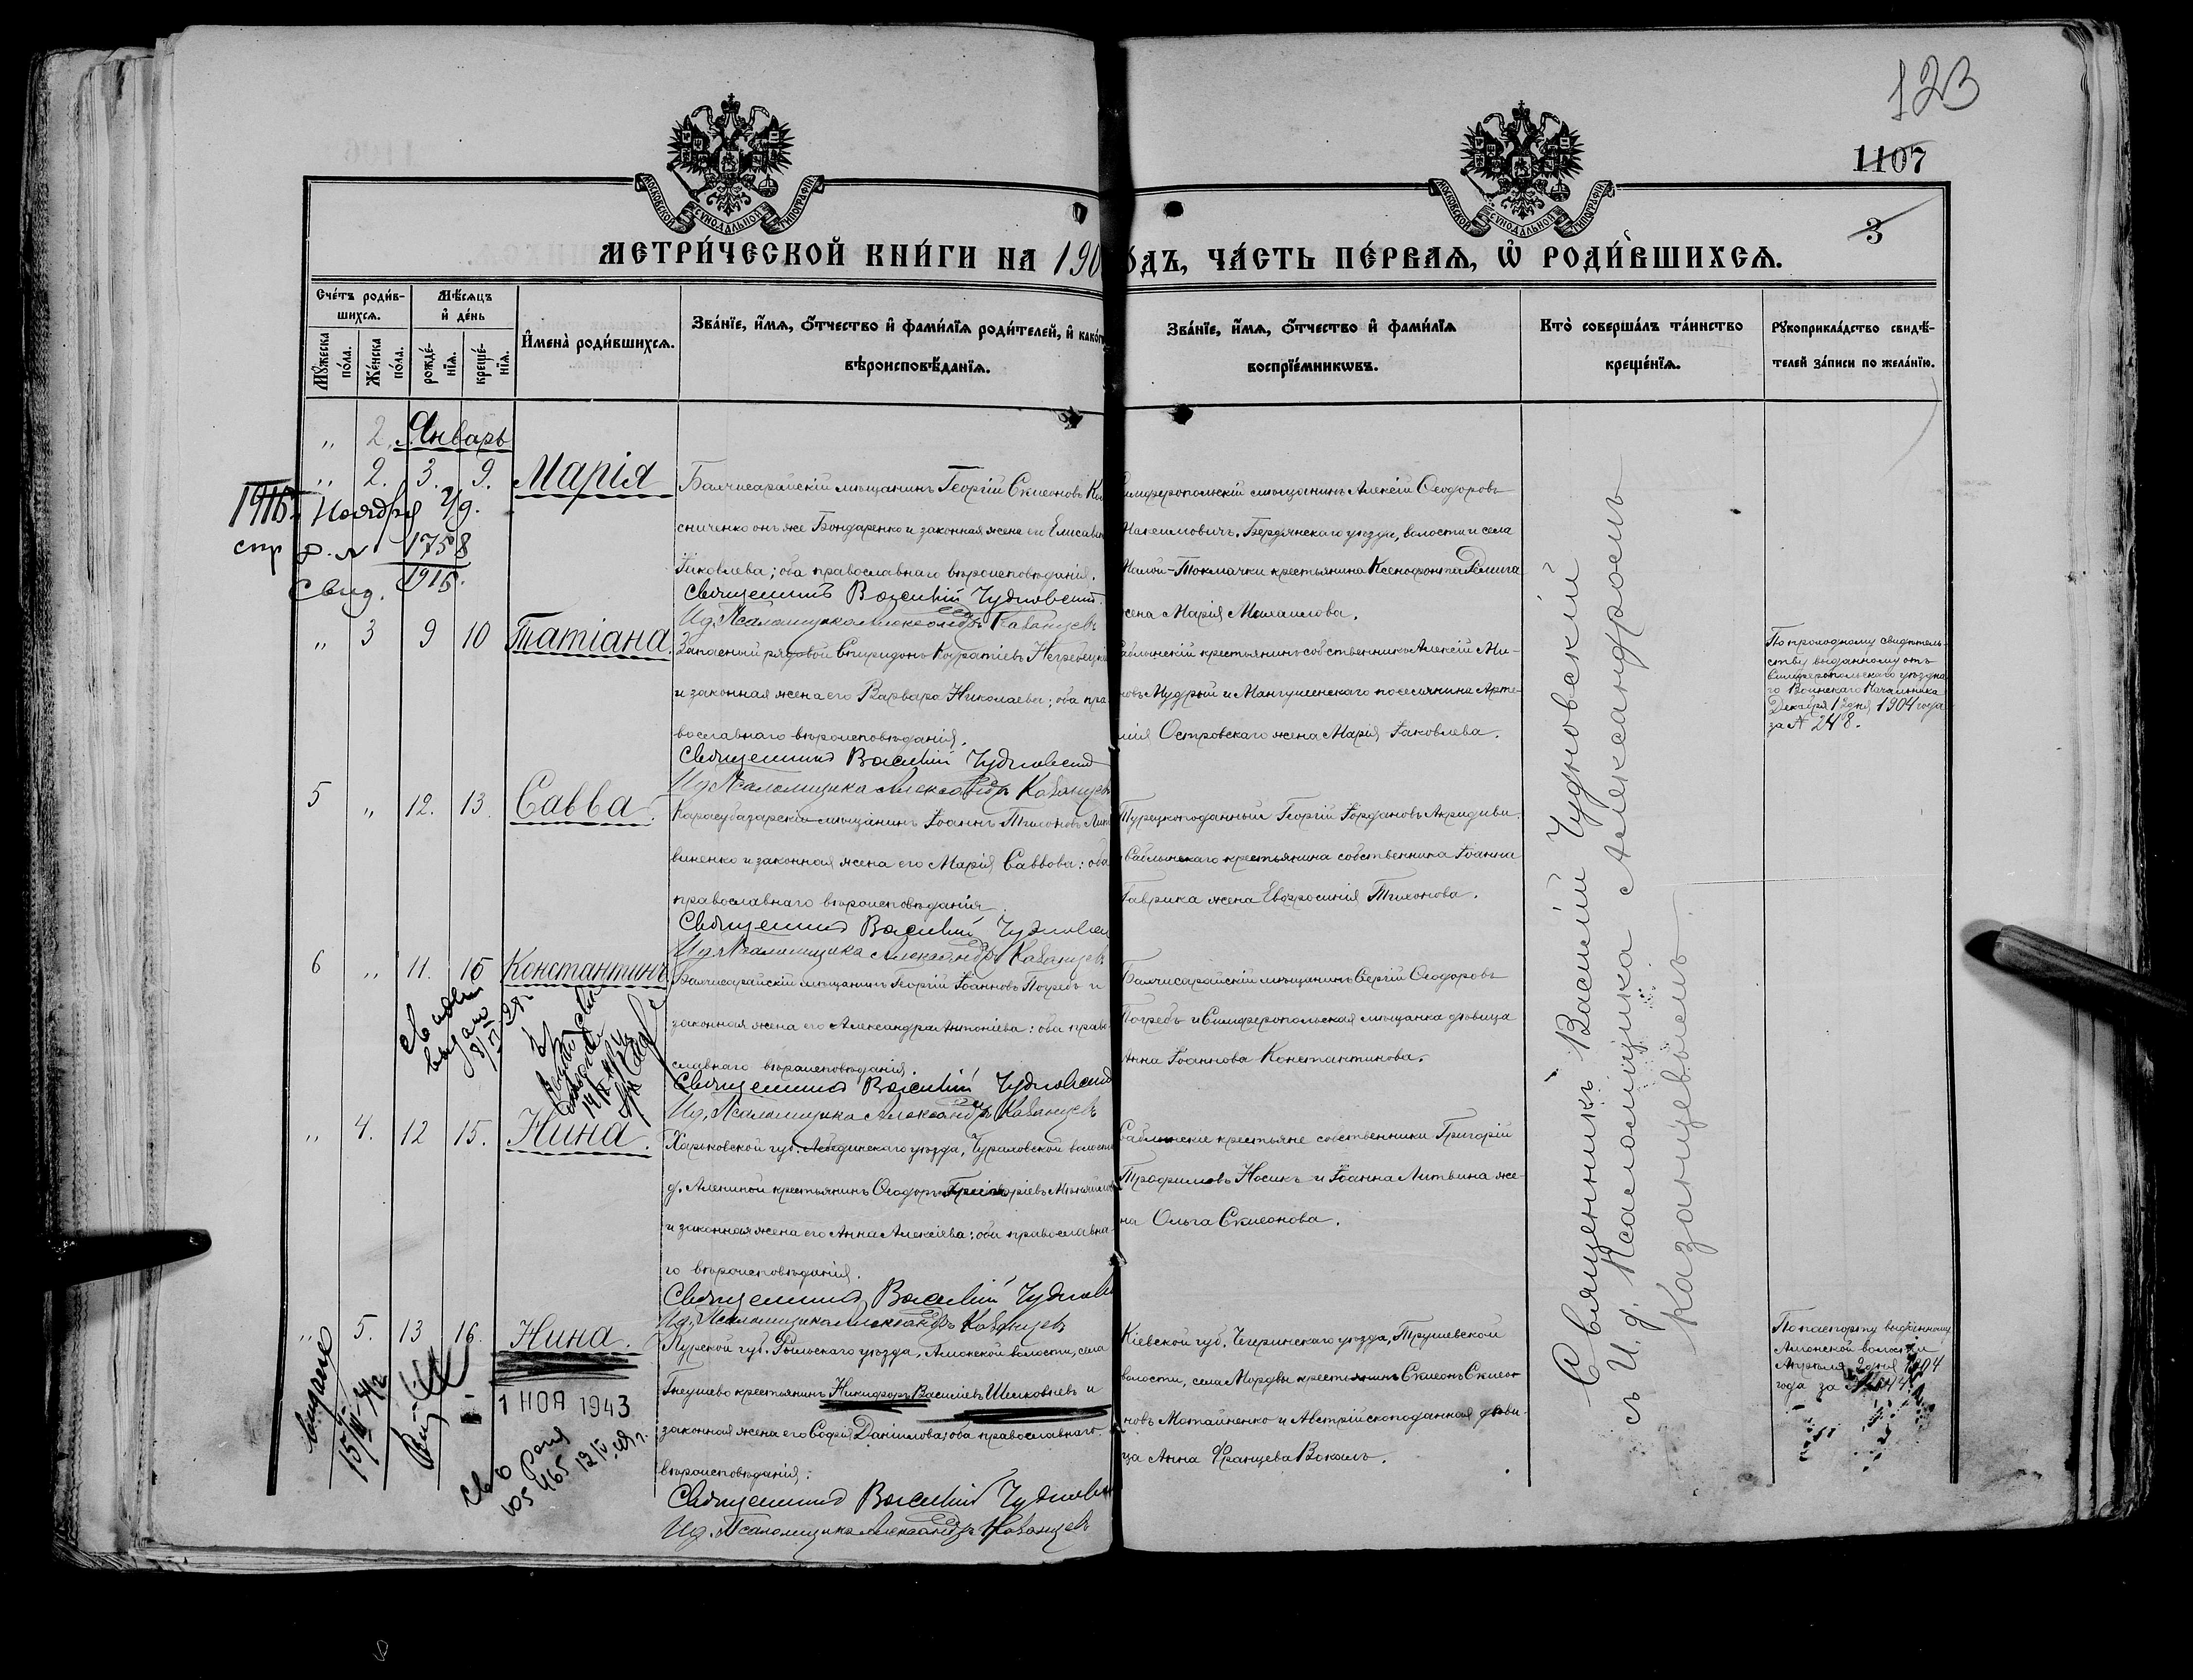 123
1107
3
МОСКОВСКОЙ СѴНОДАЛЬНОЙ ТИПОГРАФІИ
МОСКОВСКОЙ СѴНОДАЛЬНОЙ ТИПОГРАФІИ
МЕТРИ́ЧЕСКОЙ КНИ́ГИ НА 190
ОДЪ, ЧА́СТЬ ПЕ́РВАѦ, Ѡ҆ РОДИ́ВШИХСѦ.
Сче́тъ роди́в-
шихсѧ.
Мѣ́сѧцъ
и҆ де́нь
Мꙋ́жеска
по́ла.
Же́нска
по́ла.
рожде́-
нїѧ.
креще́-
нїѧ.
И҆мена̀ роди́вшихсѧ.
Зва́нїе, и҆́мѧ, ѻ҆́тчество и҆ фами́лїѧ роди́телей, и҆ како́гѡ
вѣроисповѣ́данїѧ.
Зва́нїе, и҆́мѧ, ѻ҆́тчество и҆ фами́лїѧ
воспрїе́мникѡвъ.
Кто̀ соверша́лъ та́инство
креще́нїѧ.
Рꙋкоприкла́дство свидѣ́-
телей за́писи по жела́нїю.
„ 2. Январь
„ 2. 3. 9. Марія
Бахчисарайскій мѣщанинъ Георгій Симеоновъ
сниченко онъ же Бондаренко и законная жена его Елисавета
Іаковлева; оба православнаго вѣроисповѣданія.
Священникъ Василій Чудновскій.
И.д. Псаломщика Александръ Казанцевъ
Симферопольскій мѣщанинъ Алексій Ѳеодоровъ
Максимовичъ. Бердянскаго уѣзда, волости и села
Малой-Токмачки крестьянина Ксенофонта
жена Марія
1916. Ноября
1758
1916.
Свид.
„ 3 9 10 Татіана.
Запасный рядовой Спиридонъ Кодратіевъ
и законная жена его Варвара Николаева; оба пра-
вославнаго вѣроисповѣданія.
Священникъ Василій Чудновскій
И.д. Псаломщика Александръ Казанцевъ
Саблынскій крестьянинъ собственникъ Алексій
Мудрый и Мангушенскаго поселянина Арте-
мія Островскаго жена Марія Іаковлева.
По проходному свидѣтель-
ству выданному отъ
Симферопольскаго уѣздна-
го Воинскаго Начальника
Декабря 12 дня 1904 года
за № 248.
5 „ 12. 13. Савва.
Карасубазарскій мѣщанинъ Іоаннъ Тихоновъ Лит-
виненко и законная жена его Марія Саввова: оба
православнаго вѣроисповѣданія.
Священникъ Василій Чудновскій
И.д. Псаломщика Александръ Казанцевъ
Турецкоподанный Георгій Іордановъ
Саблынскаго крестьянина собственника Іоанна
Гаврика жена Евфросинія Тихонова.
6 „ 11. 15 Константинъ.
Бахчисарайскій мѣщанинъ Георгій Іоанновъ Погребъ и
законная жена его Александра Антоніева: оба право-
славнаго вѣроисповѣданія.
Священникъ Василій Чудновскій
И.д. Псаломщика Александръ Казанцевъ
Бахчисарайскій мѣщанинъ Сергій Ѳеодоровъ
Погребъ и Симферопольская мѣщанка дѣвица
Анна Іоаннова Константинова.
„ 4. 12 15. Нина.
Харьковской губ. Лебединскаго уѣзда, волости
д. крестьянинъ Ѳеодоръ Григоріевъ
и законная жена его Анна Алексіева; оба православна-
го вѣроисповѣданія.
Священникъ Василій Чудновскій
И.д. Псаломщика Александръ Казанцевъ
Саблынскіе крестьяне собственники Григорій
Трофимовъ Носикъ и Іоанна Литвина же-
на Ольга Симеонова.
„ 5. 13 16. Нина.
Курской губ. Рыльскаго уѣзда, Амонской волости, села
Гнеушево крестьянинъ Никифоръ Василіевъ Шелковневъ и
законная жена его Софія Даніилова; оба православнаго
вѣроисповѣданія.
Священникъ Василій Чудновскій
И.д. Псаломщика Александръ Казанцевъ
Кіевской губ. Чигринскаго уѣзда, Трушевской
волости, села Мордвы крестьянинъ Симеонъ Симеон-
новъ Мотайленко и Австрійскоподанная дѣви-
ца Анна Францева
По паспорту выданному
Амонской волости
Апрѣля 2 дня 1904
года за №
1 НОЯ 1943
Священникъ Василій Чудновскій
съ И.д. Псаломщика Александромъ
Казанцевымъ.